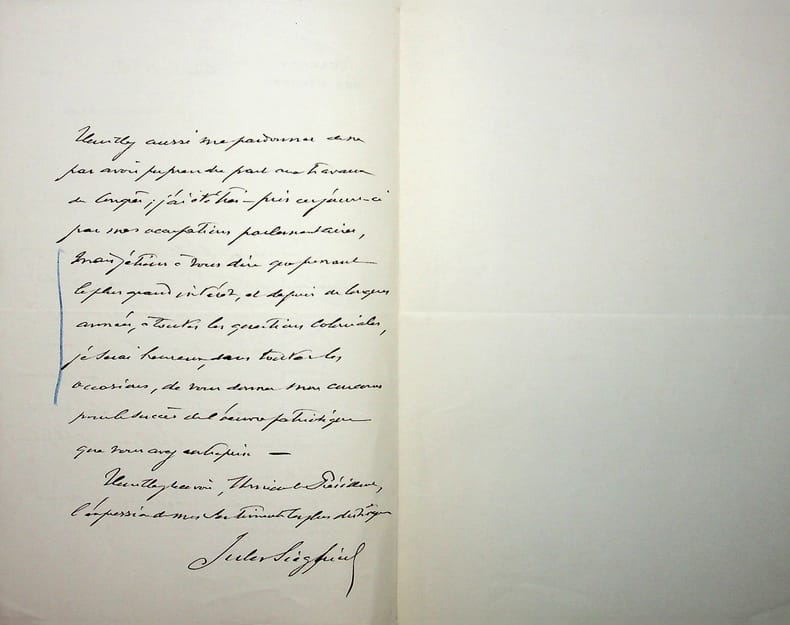 Veuillez aussi me pardonner de ne
pas avoir pu prendre part aux travaux
du Congrès; j'ai été très-pris ces jours-ci
par mes occupations parlementaires,
mais je tiens à vous dire que prenant
le plus grand intérêt, et depuis de longues
années, à toutes les questions coloniales,
je serai heureux, dans toutes les
occasions, de vous donner mon concours
pour le succès de l'œuvre patriotique
que vous avez entreprise —
Veuillez recevoir, Monsieur le Président,
l'expression de mes sentiments les plus distingués
Jules Siegfried